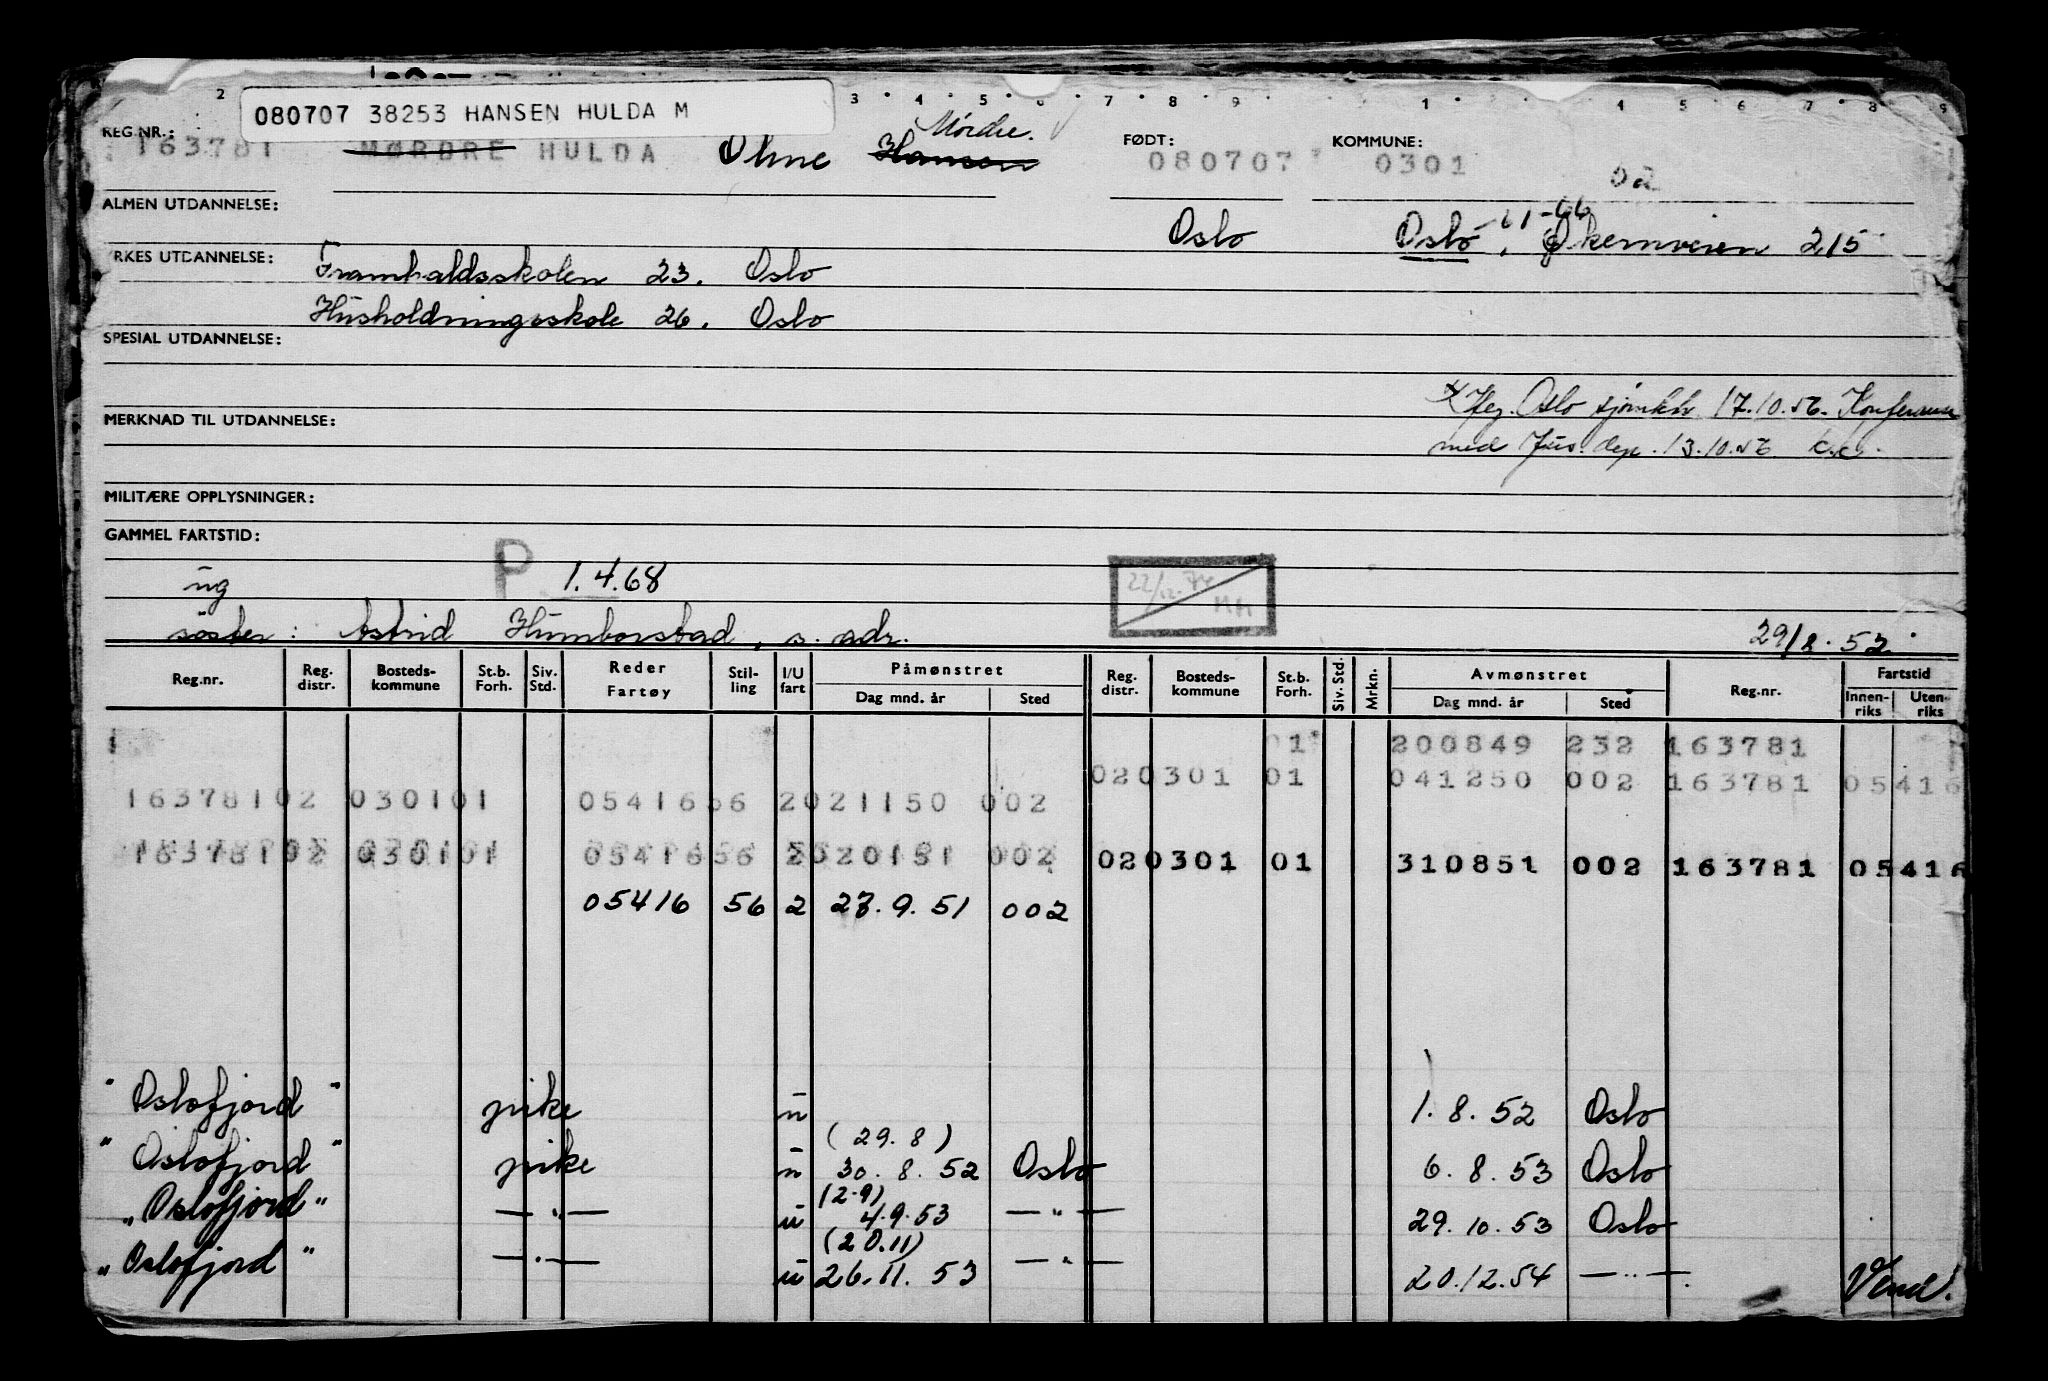 2 3 4 5 6 7 8 9 1 4 5 6 7 8 9
080707 38253 HANSEN HULDA M
Mørdre.
REG.NR.: FØDT: KOMMUNE:
163781 MØRDRE HULDA Oline Hansen 080707 0301
02
ALMEN UTDANNELSE:
Oslo Oslo, Økernveien 215
YRKES UTDANNELSE:
Framhaldsskolen 23. Oslo
Husholdningsskole 26. Oslo
SPESIAL UTDANNELSE:
Oslo sjømktr 17.10.56. Konferanse
MERKNAD TIL UTDANNELSE:
med Jus. dep. 13.10.56
MILITÆRE OPPLYSNINGER:
GAMMEL FARTSTID:
ug P 1.4.68 22/12.74 MH
søster: Astrid Humborstad, s. adr. 29/8.52
Reg.nr. Reg. distr. Bosteds-kommune St.b. Forh. Siv. Std. Reder Fartøy Stil-ling I/U fart Påmønstret Dag mnd. år Sted Reg. distr. Bosteds-kommune St.b. Forh. Siv. Std. Mrkn. Avmønstret Dag mnd. år Sted Reg.nr. Fartstid Innen-riks Uten-riks
1 200849 232 163781
020301 01 041250 002 163781 05416
16378102 030101 0541656 2021150 002
16378102 030101 0541656 2020151 002 020301 01 310851 002 163781 05416
05416 56 2 27.9.51 002
"Oslofjord" pike u 1.8.52 Oslo
(29.8)
"Oslofjord" pike u 30.8.52 Oslo 6.8.53 Oslo
(2.9)
"Oslofjord" —"— u 4.9.53 —"— 29.10.53 Oslo
(20.11)
"Oslofjord" —"— u 26.11.53 —"— 20.12.54 —"— Vend!